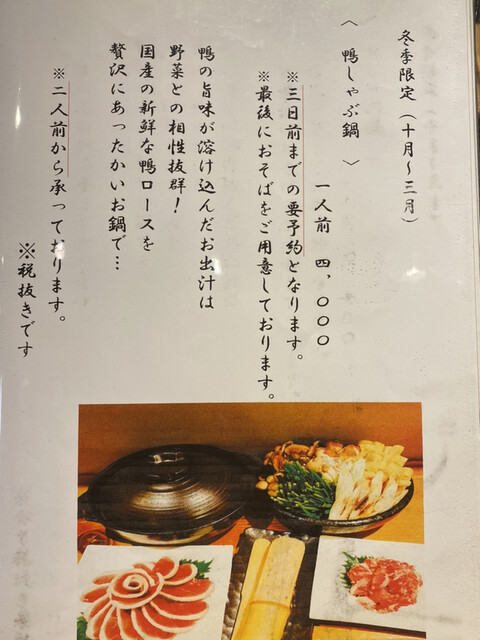 冬季限定（十月～三月）
〈 鴨しゃぶ鍋 〉
一人前 四,〇〇〇
※三日前までの要予約となります。
※最後におそばをご用意しております。
鴨の旨味が溶け込んだお出汁は
野菜との相性抜群！
国産の新鮮な鴨ロースを
贅沢にあったかいお鍋で…
※二人前から承っております。
※税抜きです